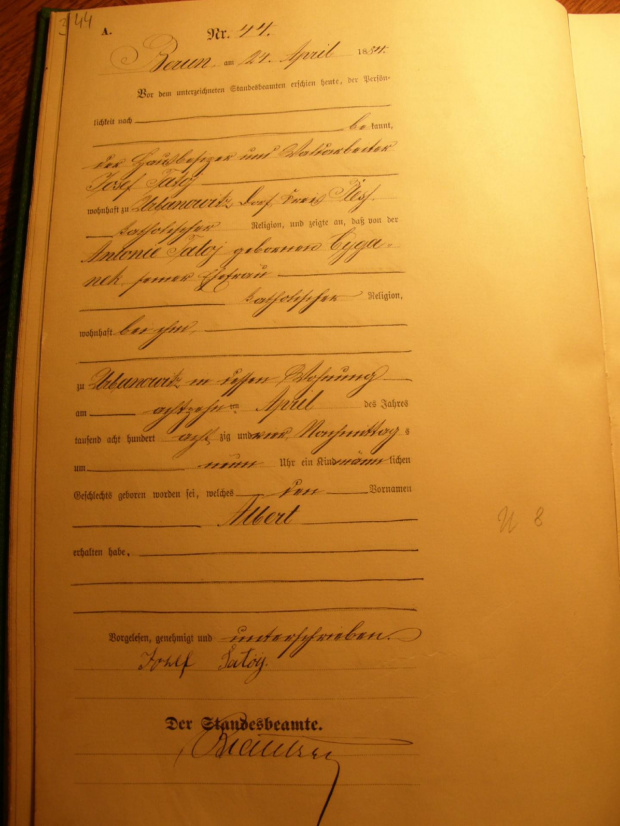 44
A. Nr. 44.
Berun am 24. April 1884.
Vor dem unterzeichneten Standesbeamten erschien heute, der Persön-
lichkeit nach
be kannt,
der Hausbesitzer und
Josef
wohnhaft zu Urbanowitz Dorf Kreis Pleß
katholischer Religion, und zeigte an, daß von der
Antonie geborenen Cyga-
nek seiner Ehefrau
katholischer Religion,
wohnhaft bei ihm,
zu Urbanowitz in dessen Wohnung
am achtzehnten April des Jahres
tausend acht hundert acht zig und vier Nachmittag s
um neun Uhr ein Kind männ lichen
Geschlechts geboren worden sei, welches den Vornamen
Albert
erhalten habe,
Vorgelesen, genehmigt und unterschrieben.
Josef
Der Standesbeamte.